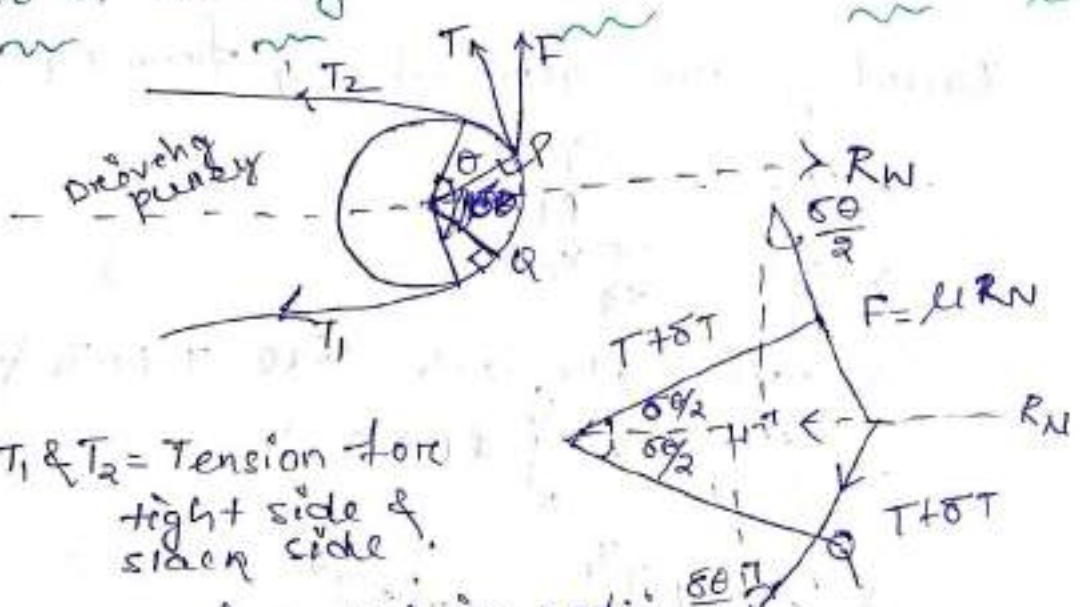 T F
T2
Driving pulley
θ P
δθ
Q
T1
RN
δθ/2
F = μRN
T+δT
δθ/2
δθ/2
RN
T+δT
Q
T1 & T2 = Tension for
tight side &
slack side.
δθ